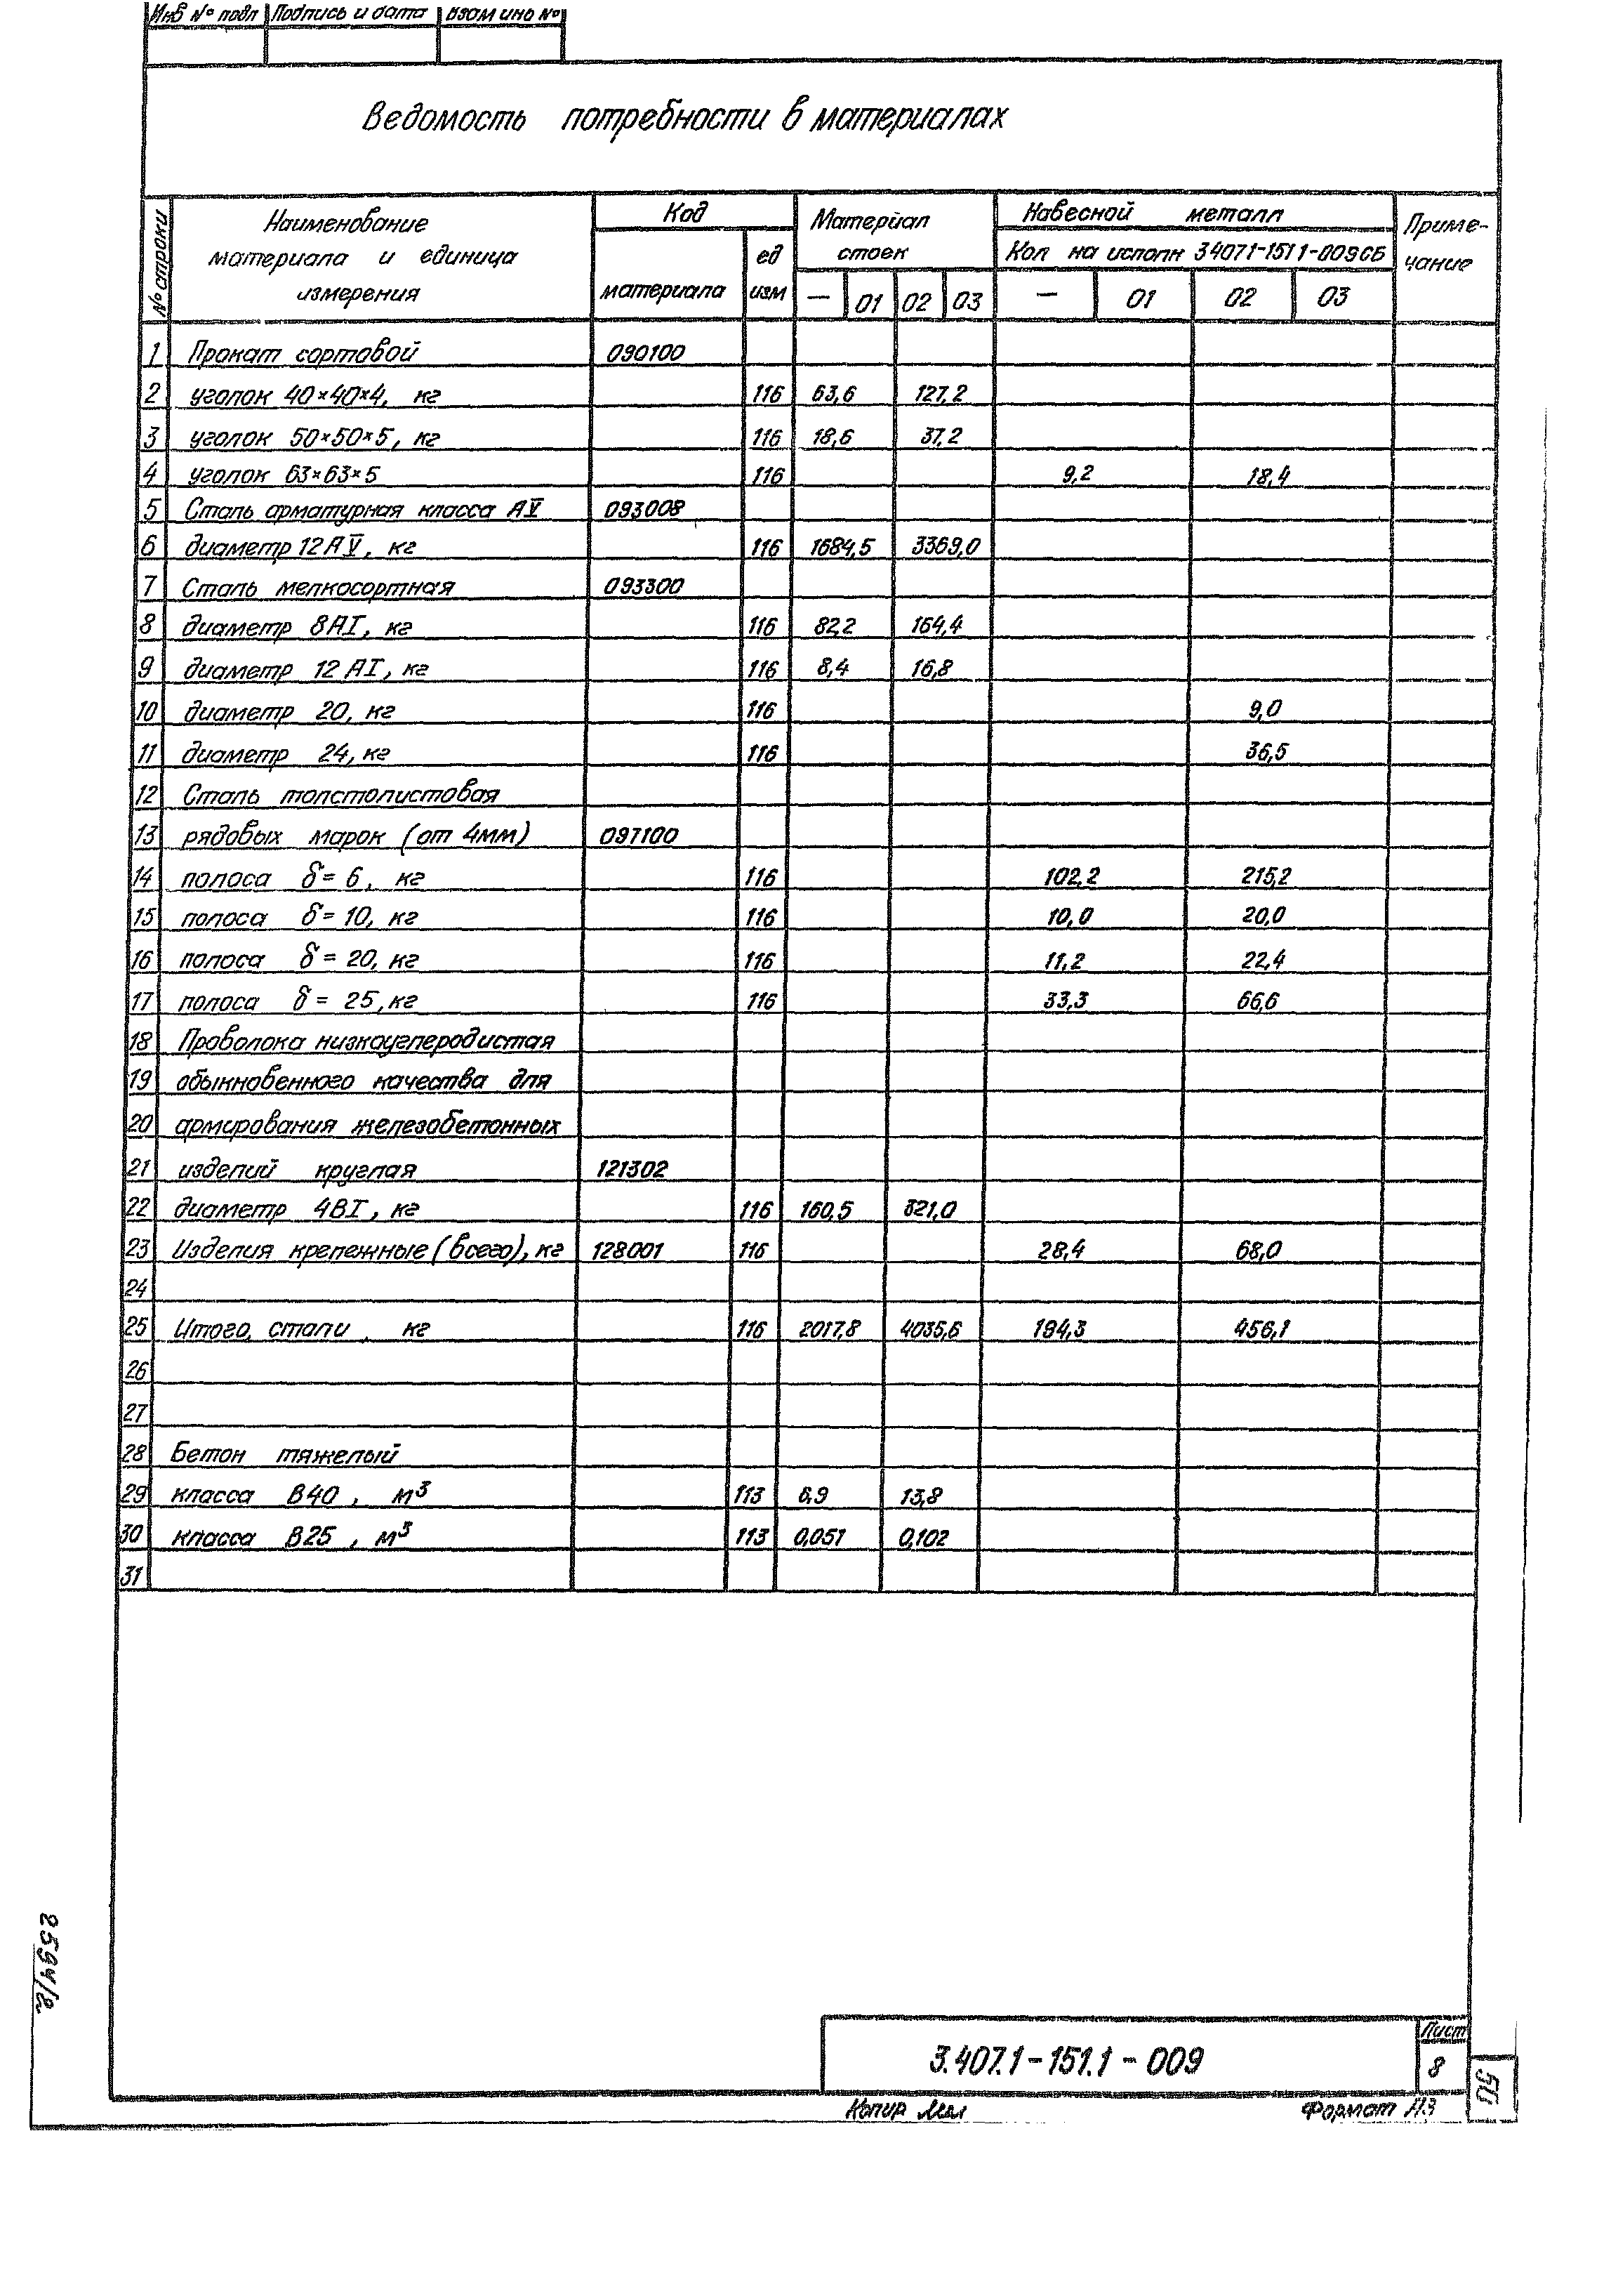 Инв № подл Подпись и дата Взам инв №
Ведомость потребности в материалах
№ строки Наименование материала и единица измерения Код Материал стоек Навесной металл Приме-чание
материала ед изм Кол на исполн 3.407.1-151 1-009СБ
— 01 02 03 — 01 02 03
1 Прокат сортовой 090100
2 уголок 40×40×4, кг 116 63,6 127,2
3 уголок 50×50×5, кг 116 18,6 37,2
4 уголок 63×63×5 116 9,2 18,4
5 Сталь арматурная класса АV 093008
6 диаметр 12АV, кг 116 1684,5 3369,0
7 Сталь мелкосортная 093300
8 диаметр 8АI, кг 116 82,2 164,4
9 диаметр 12АI, кг 116 8,4 16,8
10 диаметр 20, кг 116 9,0
11 диаметр 24, кг 116 36,5
12 Сталь толстолистовая
13 рядовых марок (от 4мм) 097100
14 полоса δ= 6, кг 116 102,2 215,2
15 полоса δ= 10, кг 116 10,0 20,0
16 полоса δ= 20, кг 116 11,2 22,4
17 полоса δ= 25, кг 116 33,3 66,6
18 Проволока низкоуглеродистая
19 обыкновенного качества для
20 армирования железобетонных
21 изделий круглая 121302
22 диаметр 4ВI, кг 116 160,5 321,0
23 Изделия крепежные (всего), кг 128001 116 28,4 68,0
24
25 Итого, стали, кг 116 2017,8 4035,6 194,3 456,1
26
27
28 Бетон тяжелый
29 класса В40, м³ 113 6,9 13,8
30 класса В25, м³ 113 0,051 0,102
31
2594/2
3.407.1-151.1-009
Лист
8
50
Копир
Формат А3